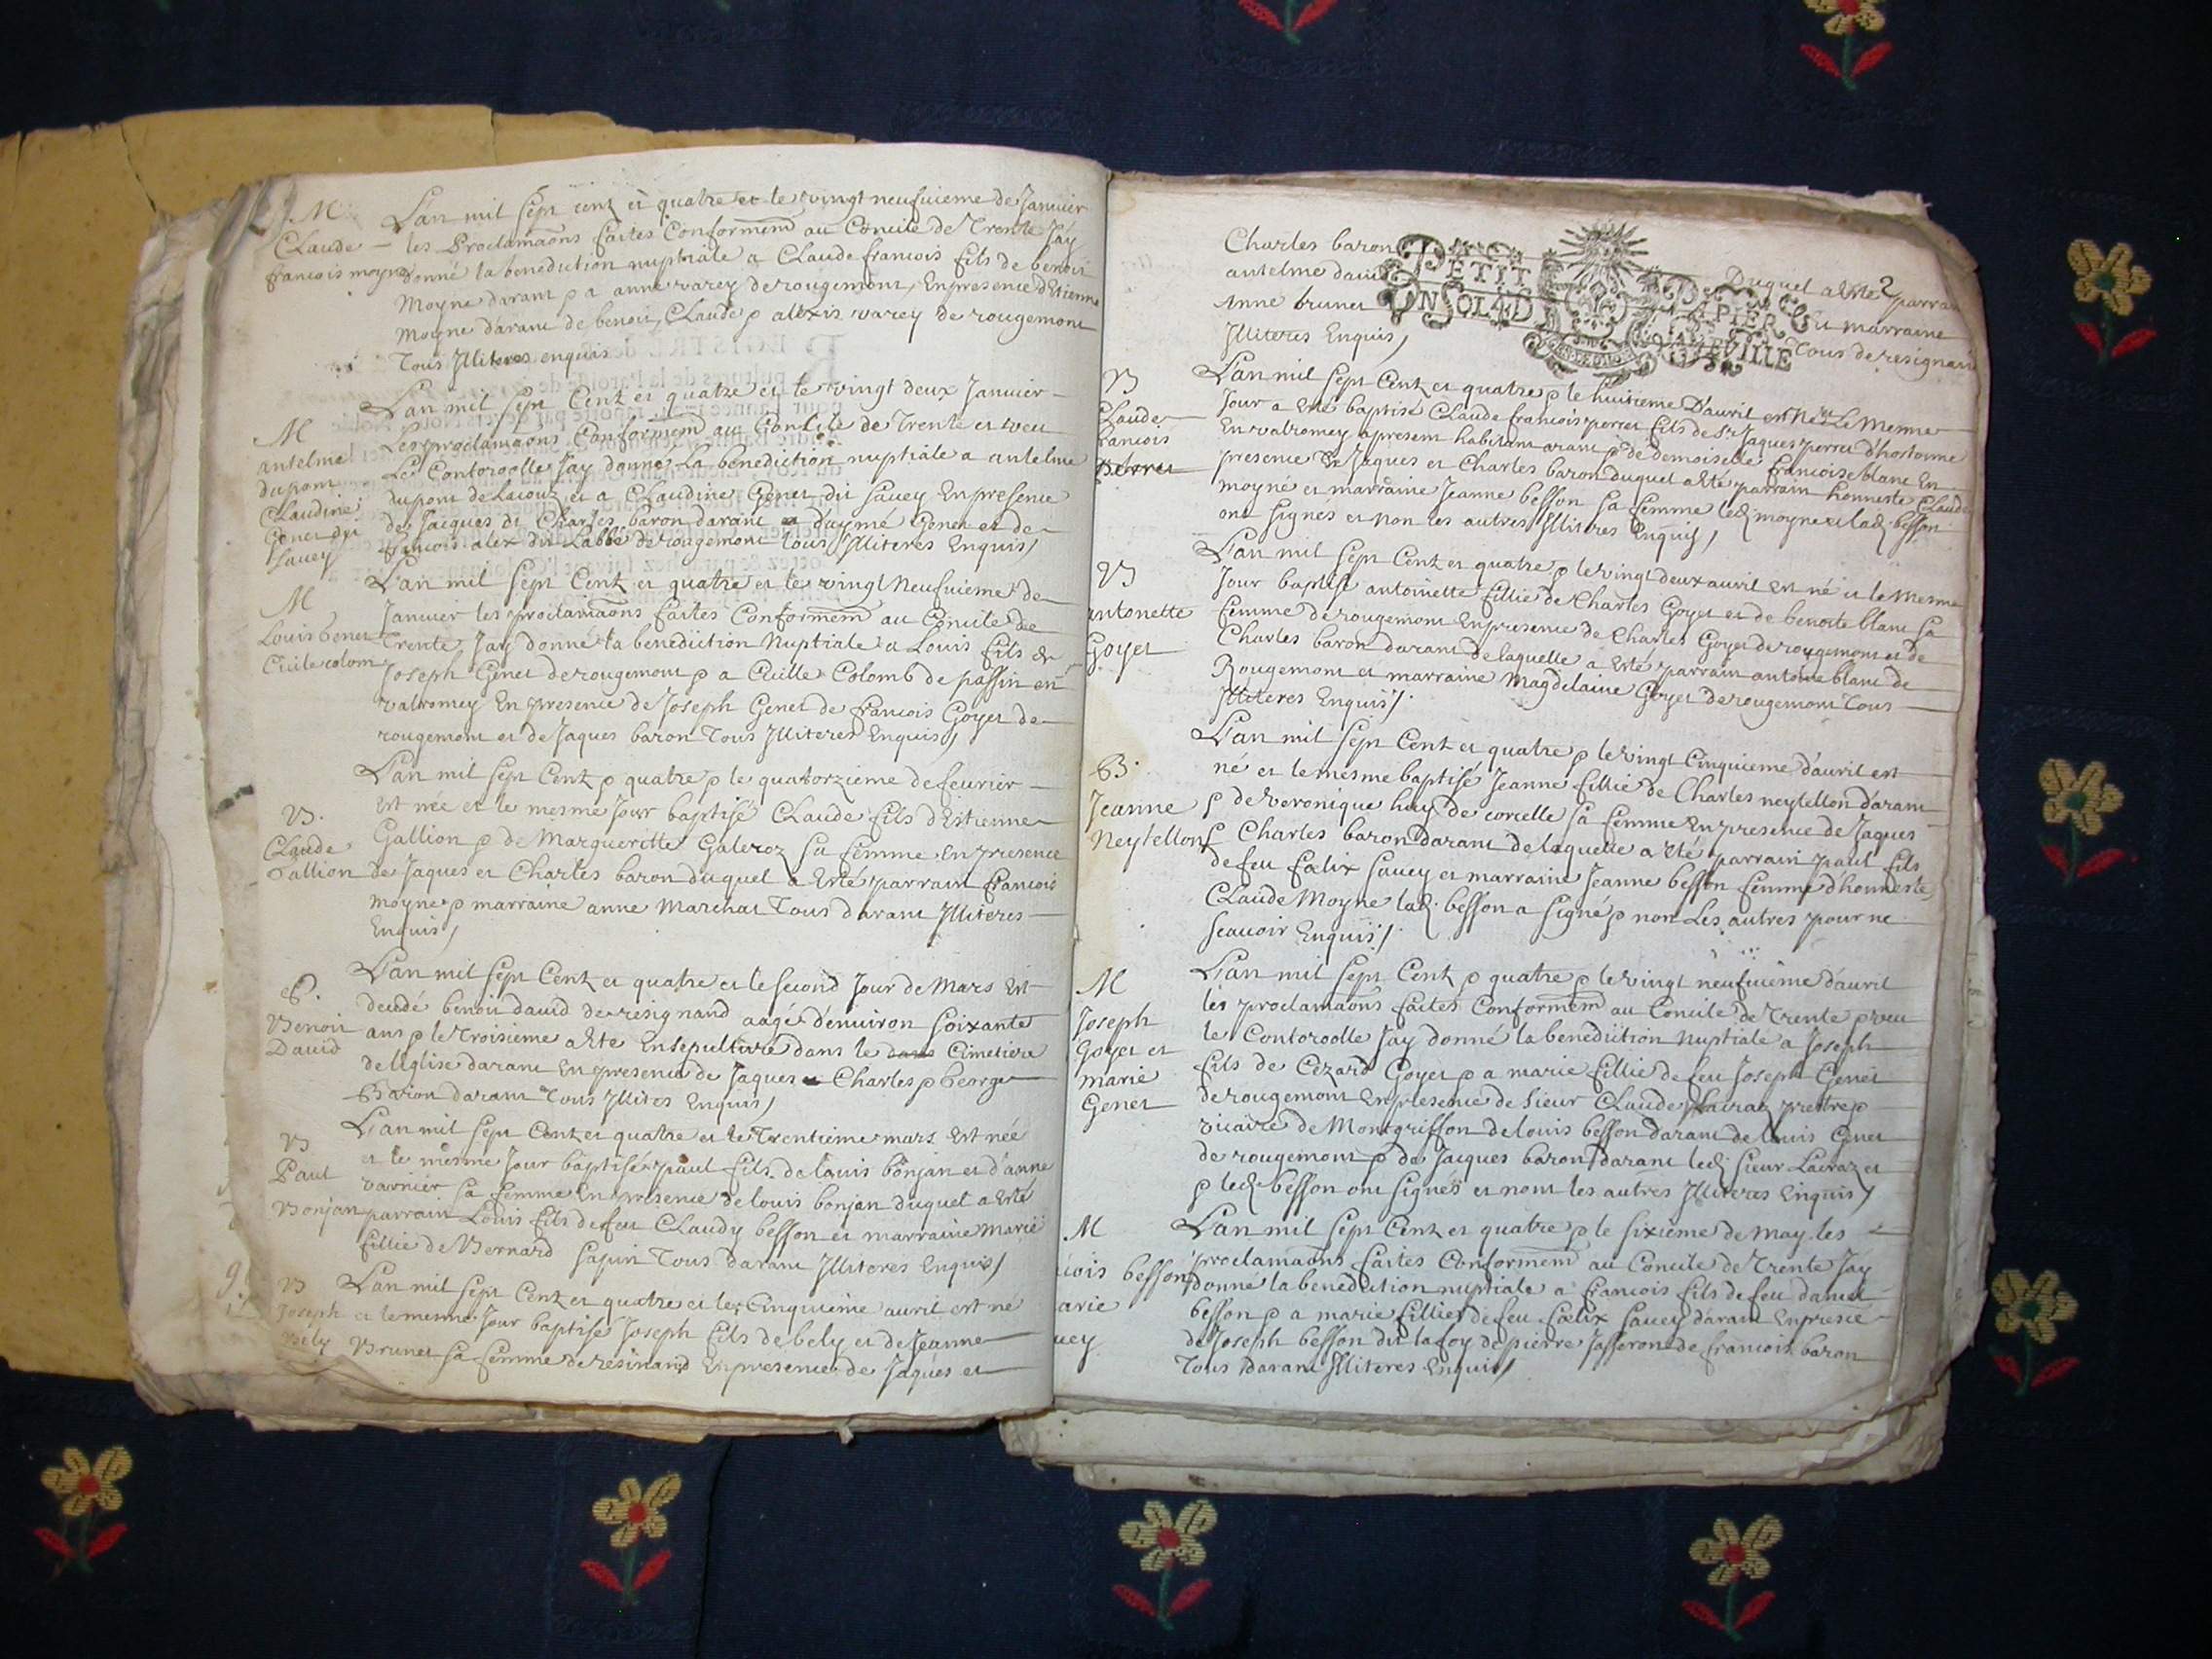 M
Claude
francois moyne
L'an mil sept cent et quatre et le vingt neufuieme de Januier
les Proclamaons faites Conformem au Concile de Trente Jay
donné la benediction nuptiale a Claude francois fils de benoit
Moyne darant p a anne varey de rougemont, En presence d'Etienne
moyne darant de benoit, Claude p alexis varey de rougemont
Tous Illiteres enquis
M
antelme
dupont
Claudine
Genet dit
sauey
L'an mil sept Cent et quatre et le vingt deux Januier
Les proclamaons Conformem au Concile de Trente et veu
Le Contoroolle Jay donné la benediction nuptiale a antelme
dupont de Lacouz et a Claudine Genet dit sauey En presence
de Jacques et Charles baron darant et d'aymé Genet et de
francois alex dit Labbé de rougemont tous Illiteres Enquis
M
Louis Genet
Cecile colom
L'an mil sept Cent et quatre et le vingt Neufuieme de
Januier les proclamaons faites Conformem au Concile de
Trente Jay donné la benediction Nuptiale a Louis fils de
Joseph Genet de rougemont p a Cecille Colomb de passin en
valromey En presence de Joseph Genet de francois Goyet de
rougemont et de Jaques baron Tous Illiteres Enquis
B.
Claude
Gallion
L'an mil sept Cent p quatre p le quatorzieme de feurier
est née et le mesme Jour baptisé Claude fils d'Estienne
Gallion p de Margueritte Galeroz sa femme En presence
de Jaques et Charles baron duquel a esté parrain francois
moyne p marraine anne Marchat Tous darant Illiteres
Enquis
S.
Benoit
David
L'an mil sept Cent et quatre et le second Jour de Mars Est
decedé benoit dauid de resignand aagé d'enuiron soixante
ans p le Troisieme a Eté Ensepulturé dans le dans Cimetiere
de leglise darant En presence de Jaques Charles p George
Baron darant Tous Illites Enquis
B
Paul
Bonjan
L'an mil sept Cent et quatre et le Trentieme mars Est née
et le mesme Jour baptisé paul fils de louis bonjan et d'anne
varnier sa femme En presence de louis bonjan duquel a Esté
parrain Louis fils de feu Claudy besson et marraine Marie
fillie de Bernard sapin Tous darant Illiteres Enquis
B
Joseph
Bely
L'an mil sept Cent et quatre et le Cinquieme auril est né
et le mesme Jour baptisé Joseph fils de bely et de Jeanne
Brunet sa femme de resinand En presence de Jaques et
Charles baron duquel a Esté parrain
antelme dauid et marraine
Anne brunet Tous de resignand
Illiteres Enquis
2
PETIT PAPIER
UN SOL 4D GENERALITE
B
Claude
francois
perret
L'an mil sept Cent et quatre p le huitieme D'auril est Né et Le Mesme
Jour a Esté baptisé Claude francois perret fils de Sr Jaques perret d'hostonne
En valromey a present habitant arant p de demoiselle francoise blanc En
presence de Jaques et Charles baron duquel a Esté parrain honneste Claude
moyne et marraine Jeanne besson sa femme led. moyne et lad. besson
ont signés et non les autres Illiteres Enquis
B
antonette
Goyet
L'an mil sept Cent et quatre p le vingt deux auril est né et le mesme
Jour baptisé antoinette fillie de Charles Goyet et de benoite blanc sa
femme de rougemont En presence de Charles Goyet de rougemont et de
Charles baron darant de laquelle a Esté parrain antoine blanc de
Rougemont et marraine Magdelaine Goyet de rougemont Tous
Illiteres Enquis
B.
Jeanne
Neytellon
L'an mil sept Cent et quatre p le vingt Cinquieme d'auril est
né et le mesme baptisé Jeanne fillie de Charles neytellon darant
p de veronique huy de corcelle sa femme En presence de Jaques
Charles baron darant de laquelle a Eté parrain paul fils
de feu fœlix sauey et marraine Jeanne besson femme d'honneste
Claude Moyne lad. besson a signé p non Les autres pour ne
scauoir Enquis
M
Joseph
Goyet et
marie
Genet
L'an mil sept Cent p quatre p le vingt neufuieme d'auril
les proclamaons faites Conformem au Concile de Trente p veu
le Contoroolle Jay donné la benediction nuptiale a Joseph
fils de Cezard Goyet p a marie fillie de feu Joseph Genet
de rougemont En presence de sieur Claude Lairaz prettre p
vicaire de Montgriffon de louis besson darant de louis Genet
de rougemont p de Jacques baron darant led. sieur Lairaz et
p led. besson ont signes et nont les autres Illiteres Enquis
M
cois besson
arie
uey
L'an mil sept Cent et quatre p le sixieme de may les
proclamaons faites Conformem au Concile de Trente Jay
donné la benediction nuptiale a francois fils de feu daniel
besson p a marie fillie de feu fœlix sauey darant En presce
de Joseph besson dit lafoy de pierre Jasseron de francois baron
Tous darant Illiteres Enquis